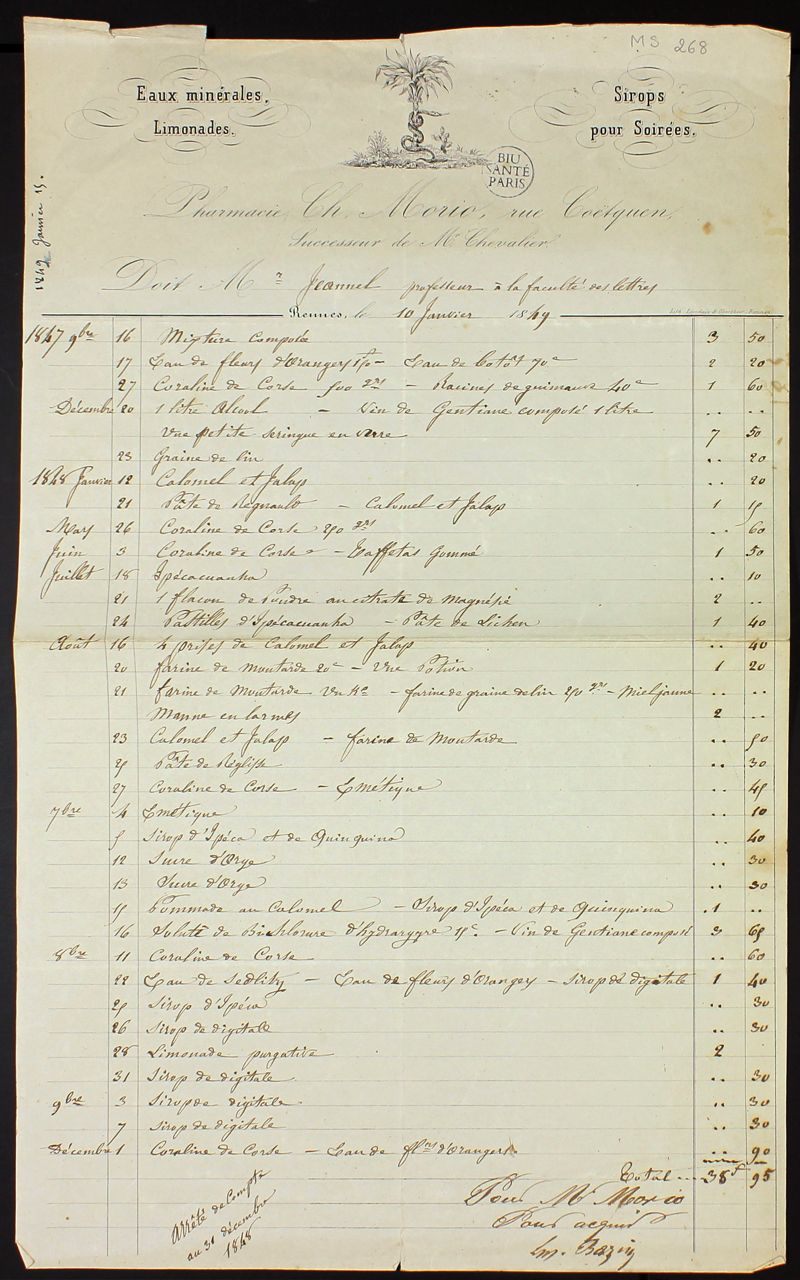 MS 268
Eaux minérales.
Limonades.
Sirops
pour Soirées.
BIU
SANTÉ
PARIS
1849 Janvier 15.
Pharmacie, Ch. Morio, rue Coëtquen,
Successeur de Mr Chevalier
Doit Mr Jeannel professeur à la faculté des lettres
Rennes, le 10 Janvier 1849
1847 9bre 16 Mixture Composée 3 50
17 Eau de fleurs d'Orangers 1f50 - Eau de Botôt 70c 2 20
27 Coraline de Corse 500 gns - Racines de guimauve 40c 1 60
Décembre 20 1 litre Alcool - Vin de Gentiane composé 1 litre .. ..
Une petite Seringue en verre 7 50
23 Graine de lin .. 20
1848 Janvier 12 Calomel et Jalap .. 20
21 Pâte de Regnault - Calomel et Jalap 1 15
Mars 26 Coraline de Corse 250 gns .. 60
Juin 3 Coraline de Corse - Taffetas Gommé 1 50
Juillet 18 Ipécacuanha .. 10
21 1 flacon de Poudre au citrate de Magnésie 2 ..
24 Pastilles d'Ipécacuanha - Pâte de Lichen 1 40
Août 16 4 prises de Calomel et Jalap .. 40
20 farine de moutarde 20c - Une Potion 1 20
21 farine de Moutarde - farine de graine de lin 250 gns - Miel jaune .. ..
Manne en larmes 2 ..
23 Calomel et Jalap - farine de Moutarde .. 50
25 Pâte de Réglisse .. 30
27 Coraline de Corse - Emétique .. 45
7bre 4 Emétique .. 10
5 Sirop d'Ipéca et de Quinquina .. 40
12 Sucre d'Orge .. 30
13 Sucre d'Orge .. 30
15 Pommade au Calomel - Sirop d'Ipéca et de Quinquina .1 ..
16 Soluté de Bichlorure d'hydrargyre 15c - Vin de Gentiane composé 3 65
8bre 11 Coraline de Corse .. 60
22 Eau de Sedlitz - Eau de fleurs d'Orangers - Sirop de digitale 1 40
25 Sirop d'Ipéca .. 30
26 Sirop de digitale .. 30
28 Limonade purgative 2
31 Sirop de digitale .. 30
9bre 3 Sirop de digitale .. 30
7 Sirop de digitale .. 30
Décembre 1 Coraline de Corse - Eau de flrs d'Orangers. .. 90
Total ... 38f 95
Pour Mr Morio
Pour acquit
Bazin
Arrêté de Compte
au 31 décembre
1848